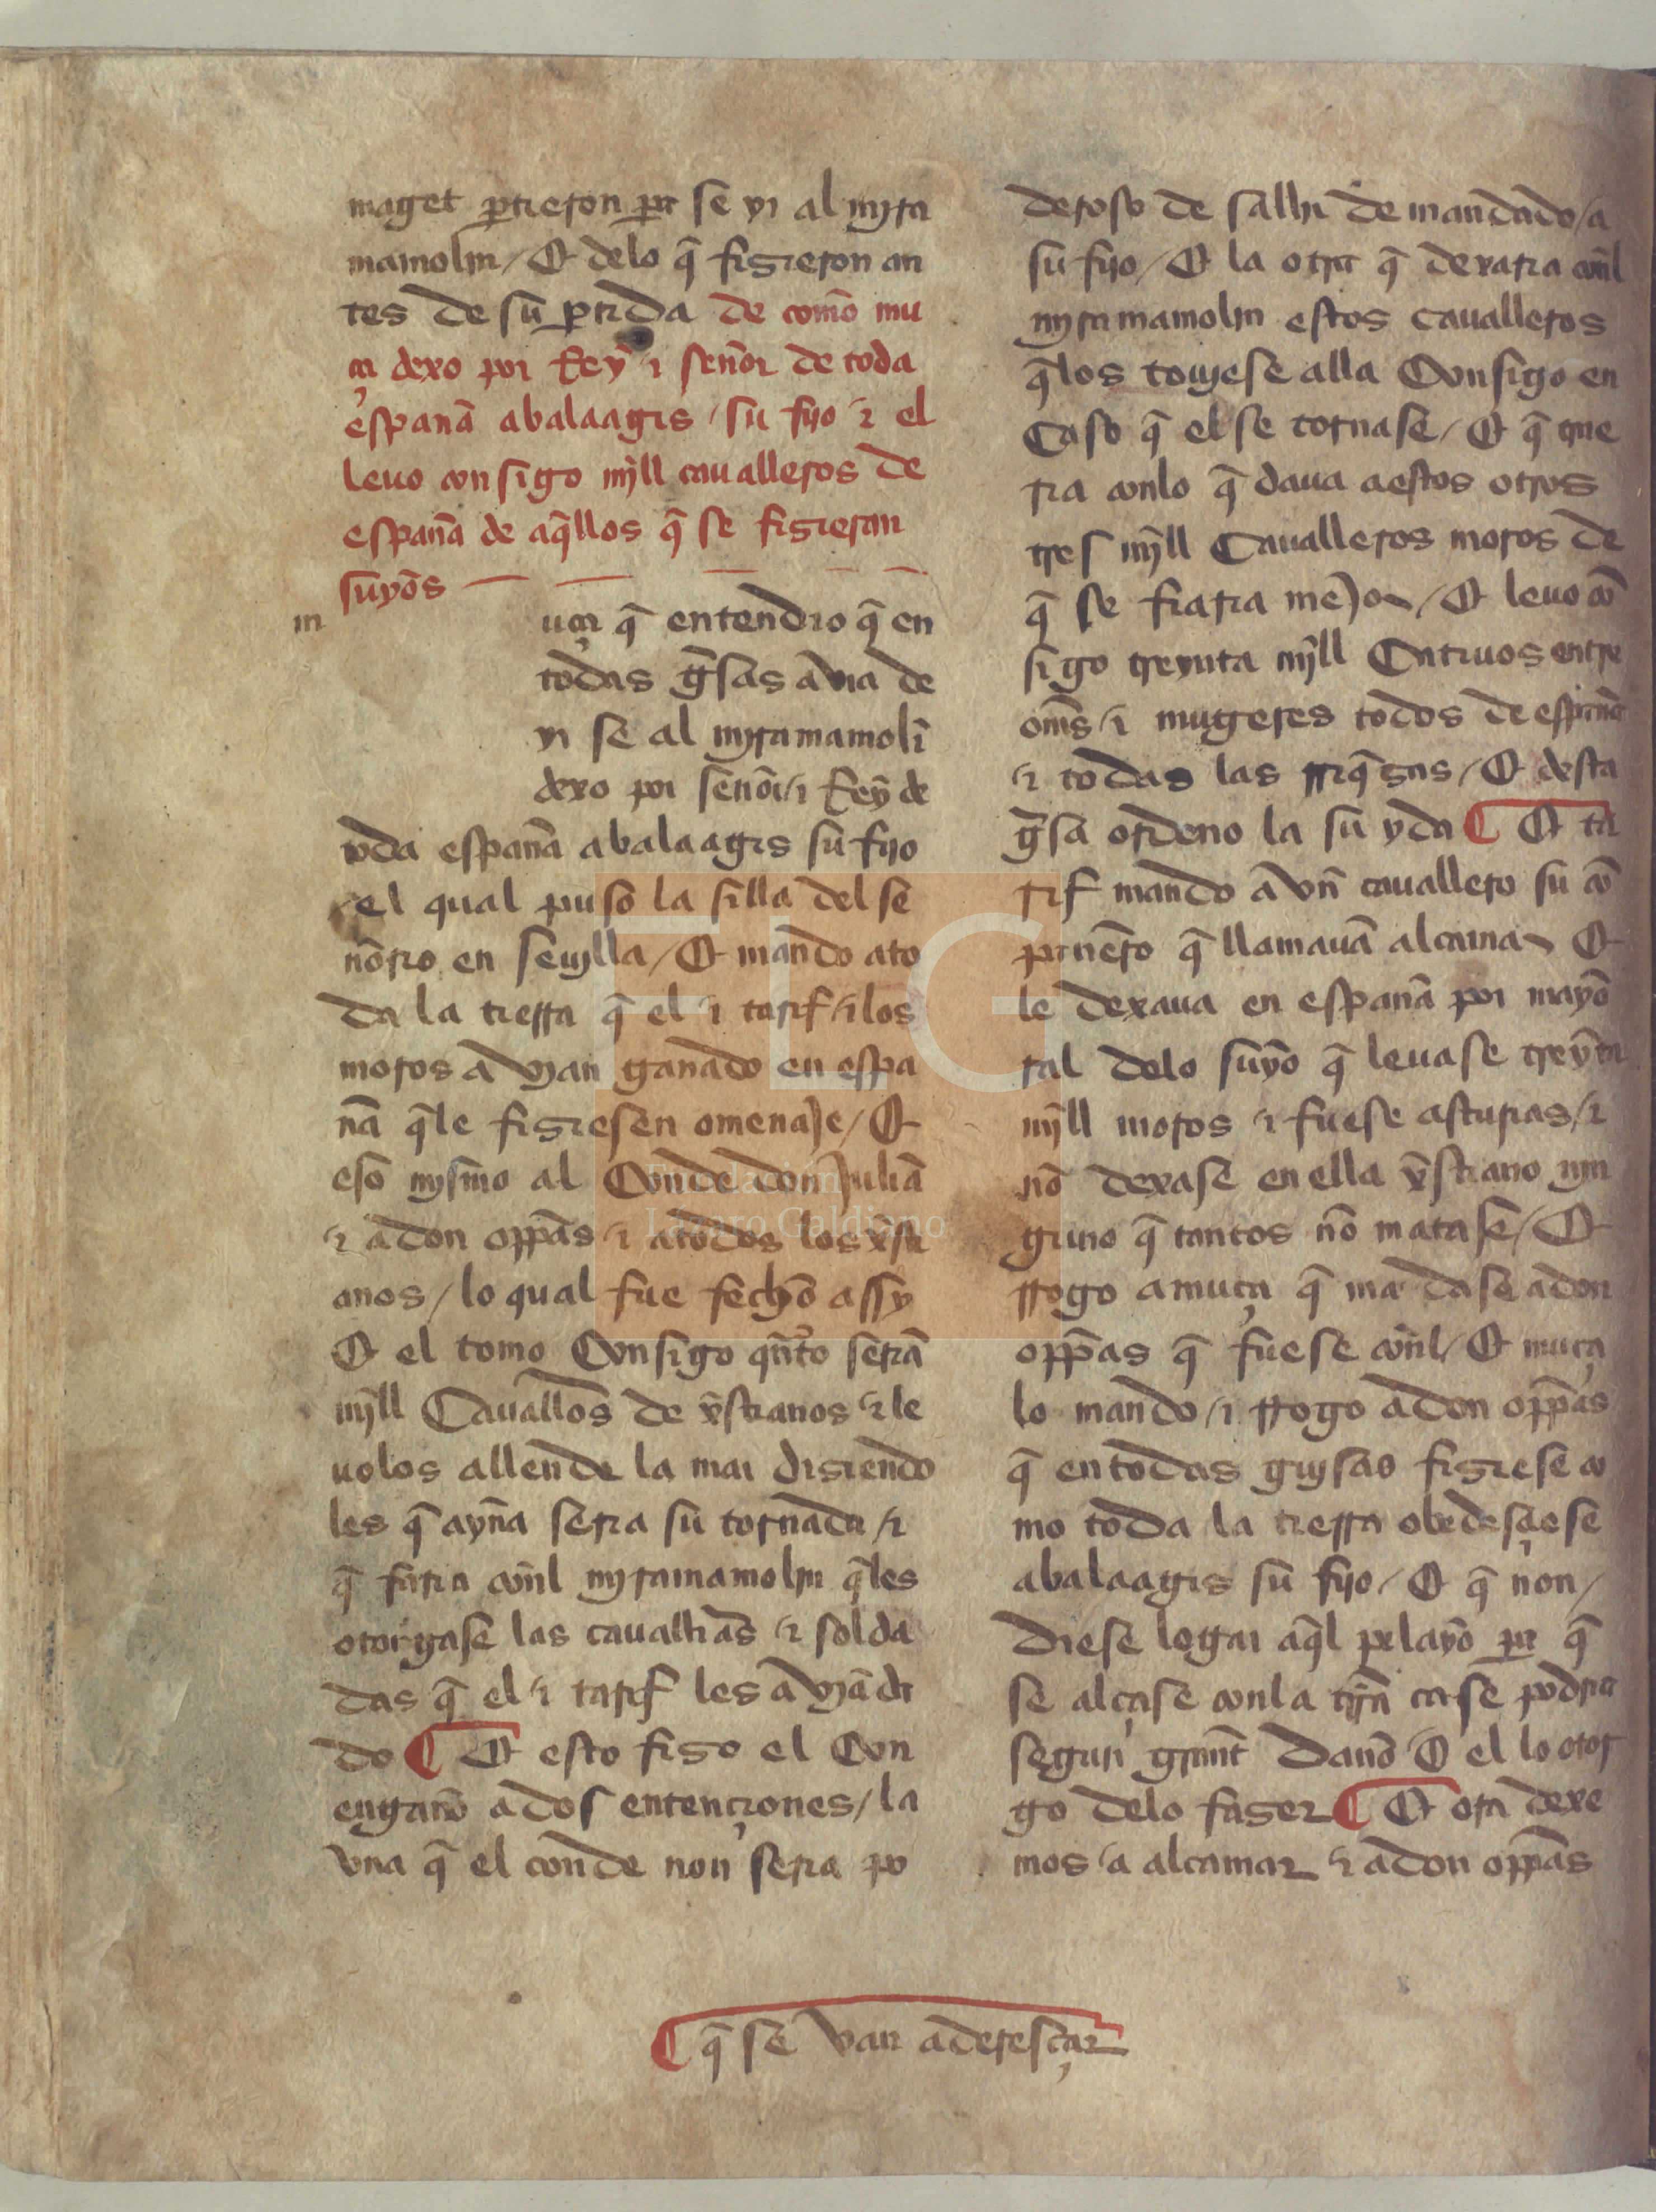 maget ꝑtieron ꝑa se yr al myra
mamolin / Et delo q̄ fisieron an
tes de su ꝑtida de commo mu
ça dexo por Rey ⁊ señor de toda
españa abalaagis / su fijo ⁊ el
leuo consigo mjll caualleros de
españa de aq̄llos q̄ se fisieran
suyos
m
uça q̄ entendio q̄ en
todas g̃sas auia de
yr se al myramamolī
dexo por señor / ⁊ Rey de
toda españa abalaagis su fijo
el qual puso la silla del se
ñorio en seuylla / Et mando ato
da la tierra q̄ el ⁊ tarif / ⁊ los
moros a vian ganado en espa
ña q̄le fisiesen omenaje / Et
eso mysmo al Conde don juliā
⁊ adon oppas ⁊ atodos los xp̄sti
anos / lo qual fue fecho assy
Et el tomo Consigo qñto serā
mjll Cauallos de xp̄stianos ⁊ le
uolos allende la mar disiendo
les q̄ ayna seria su tornada / ⁊
q̄ faria cōnl myramamolin q̄les
otorgase las cauallias ⁊ solda
das q̄ el ⁊ tarif les a viā da
do ¶ Et esto fiso el Con
engaño ados entençiones / la
vna q̄ el conde non seria po
deroso de salhir de mandado / a
su fijo / Et la otra q̄ dexaria cōnl
myramamolin estos caualleros
q̄los touyese alla Consigo en
Caso q̄ el se tornase / Et q̄ que
ria conlo q̄ daua aestos otros
tres mjll Caualleros moros de
q̄ se fiaria mejor / Et leuo cō
sigo treynta mjll Catiuos entre
om̄s / ⁊ mugeres todos de españa
⁊ todas las rriq̄sas / Et desta
g̃sa ordeno la su yda ¶ Et ta
rif mando a vn cauallero su cō
panero q̄ llamauā alcama Et
le dexaua en españa por mayō
ral delo suyo q̄ leuase treynta
mjll moros ⁊ fuese asturias / ⁊
no dexase en ella xp̄stiano njn
guno q̄ tantos no matase / Et
rrogo amuça q̄ mā dase adon
oppas q̄ fuese cōnl / Et muça
lo mando / ⁊ rrogo adon oppas
q̄ en todas guysas fisiese co
mo toda la tierra obedesçiese
abalaagis su fijo / Et q̄ non /
diese logar aq̄l pelayo ꝑa q̄
se alçase conla tr̄ra ca se podria
seguir grant daño Et el lo otor
go delo faser ¶ Et ora dexe
mos / a alcamar ⁊ adon oppas
¶ q̄ se van aderesçar